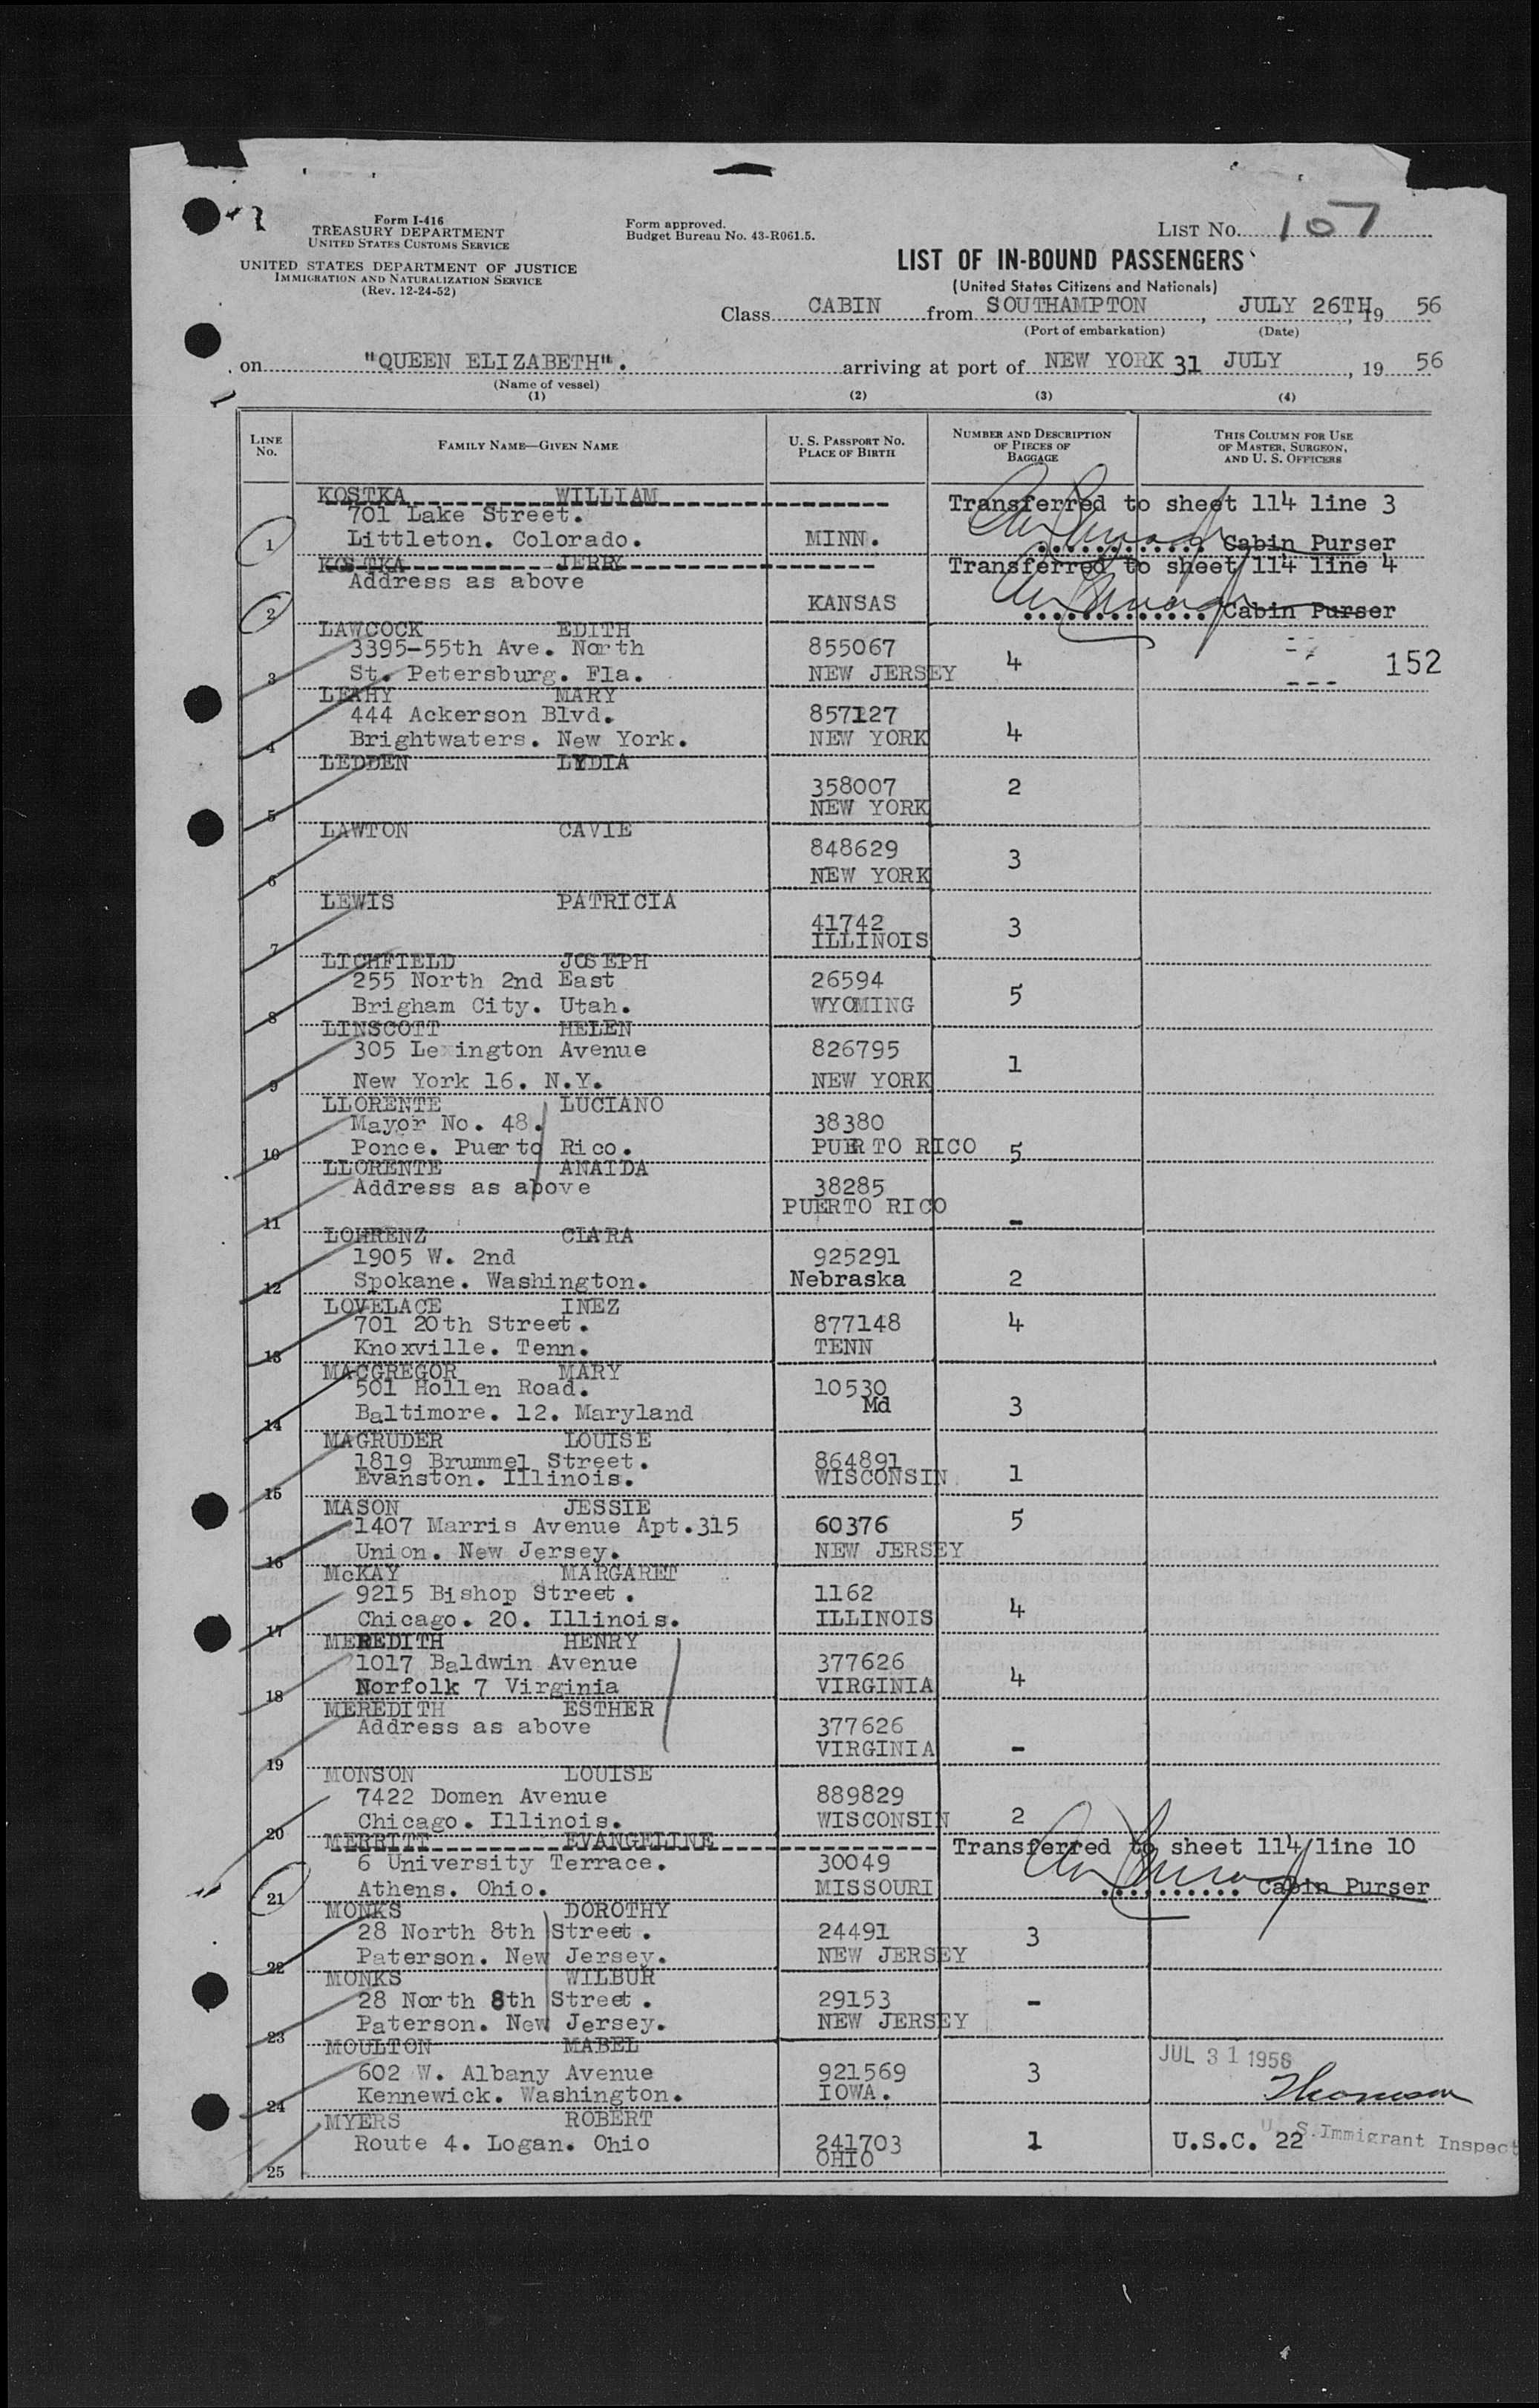 Form I-416
TREASURY DEPARTMENT
UNITED STATES CUSTOMS SERVICE
UNITED STATES DEPARTMENT OF JUSTICE
IMMIGRATION AND NATURALIZATION SERVICE
(Rev. 12-24-52)
Form approved.
Budget Bureau No. 43-R061.5.
LIST No. 107
LIST OF IN-BOUND PASSENGERS
(United States Citizens and Nationals)
Class CABIN from SOUTHAMPTON, JULY 26TH, 19 56
(Port of embarkation) (Date)
on "QUEEN ELIZABETH". arriving at port of NEW YORK 31 JULY, 19 56
(Name of vessel)
(1) (2) (3) (4)
LINE No. FAMILY NAME—GIVEN NAME U. S. PASSPORT No. PLACE OF BIRTH NUMBER AND DESCRIPTION OF PIECES OF BAGGAGE THIS COLUMN FOR USE OF MASTER, SURGEON, AND U. S. OFFICERS
KOSTKA WILLIAM Transferred to sheet 114 line 3
701 Lake Street.
1 Littleton. Colorado. MINN. Cabin Purser
KOSTKA JERRY Transferred to sheet 114 line 4
Address as above
2 KANSAS Cabin Purser
LAWCOCK EDITH
3395-55th Ave. North 855067 4 152
3 St. Petersburg. Fla. NEW JERSEY
LEAHY MARY
444 Ackerson Blvd. 857127 4
4 Brightwaters. New York. NEW YORK
LEDDEN LYDIA
358007 2
5 NEW YORK
LAWTON CAVIE
848629 3
6 NEW YORK
LEWIS PATRICIA
41742 3
7 ILLINOIS
LICHFIELD JOSEPH
255 North 2nd East 26594 5
8 Brigham City. Utah. WYOMING
LINSCOTT HELEN
305 Lexington Avenue 826795 1
9 New York 16. N.Y. NEW YORK
LLORENTE LUCIANO
Mayor No. 48. 38380
10 Ponce. Puerto Rico. PUERTO RICO 5
LLORENTE ANAIDA
Address as above 38285
11 PUERTO RICO -
LOHRENZ CLARA
1905 W. 2nd 925291
12 Spokane. Washington. Nebraska 2
LOVELACE INEZ
701 20th Street. 877148 4
13 Knoxville. Tenn. TENN
MACGREGOR MARY
501 Hollen Road. 10530
14 Baltimore. 12. Maryland Md 3
MAGRUDER LOUISE
1819 Brummel Street. 864891
15 Evanston. Illinois. WISCONSIN 1
MASON JESSIE
1407 Marris Avenue Apt.315 60376 5
16 Union. New Jersey. NEW JERSEY
McKAY MARGARET
9215 Bishop Street. 1162 4
17 Chicago. 20. Illinois. ILLINOIS
MEREDITH HENRY
1017 Baldwin Avenue 377626 4
18 Norfolk 7 Virginia VIRGINIA
MEREDITH ESTHER
Address as above 377626
19 VIRGINIA -
MONSON LOUISE
7422 Domen Avenue 889829
20 Chicago. Illinois. WISCONSIN 2
MERRITT EVANGELINE Transferred to sheet 114 line 10
6 University Terrace. 30049
21 Athens. Ohio. MISSOURI Cabin Purser
MONKS DOROTHY
28 North 8th Street. 24491 3
22 Paterson. New Jersey. NEW JERSEY
MONKS WILBUR
28 North 8th Street. 29153 -
23 Paterson. New Jersey. NEW JERSEY
MOULTON MABEL JUL 31 1956
602 W. Albany Avenue 921569 3
24 Kennewick. Washington. IOWA. Thomson
MYERS ROBERT
Route 4. Logan. Ohio 241703 1 U.S.C. 22 U. S. Immigrant Inspect
25 OHIO